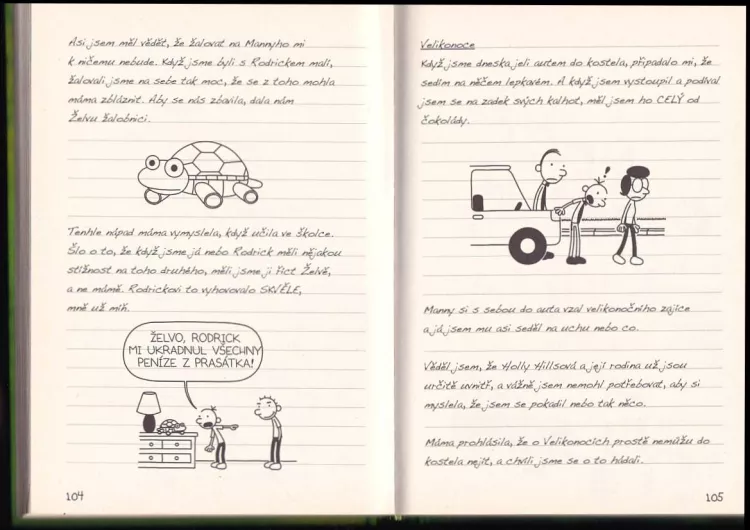 Asi jsem měl vědět, že žalovat na Mannyho mi
k ničemu nebude. Když jsme byli s Rodrickem malí,
žalovali jsme na sebe tak moc, že se z toho mohla
máma zbláznit. Aby se nás zbavila, dala nám
Želvu žalobnici.
Tenhle nápad máma vymyslela, když učila ve školce.
Šlo o to, že když jsme já nebo Rodrick měli nějakou
stížnost na toho druhého, měli jsme ji říct Želvě,
a ne mámě. Rodrickovi to vyhovovalo SKVĚLE,
mně už míň.
ŽELVO, RODRICK
MI UKRADNUL VŠECHNY
PENÍZE Z PRASÁTKA!
104
Velikonoce
Když jsme dneska jeli autem do kostela, připadalo mi, že
sedím na něčem lepkavém. A když jsem vystoupil a podíval
jsem se na zadek svých kalhot, měl jsem ho CELÝ od
čokolády.
!
Manny si s sebou do auta vzal velikonočního zajíce
a já jsem mu asi seděl na uchu nebo co.
Věděl jsem, že Holly Hillsová a její rodina už jsou
určitě uvnitř, a vážně jsem nemohl potřebovat, aby si
myslela, že jsem se pokadil nebo tak něco.
Máma prohlásila, že o Velikonocích prostě nemůžu do
kostela nejít, a chvíli jsme se o to hádali.
105